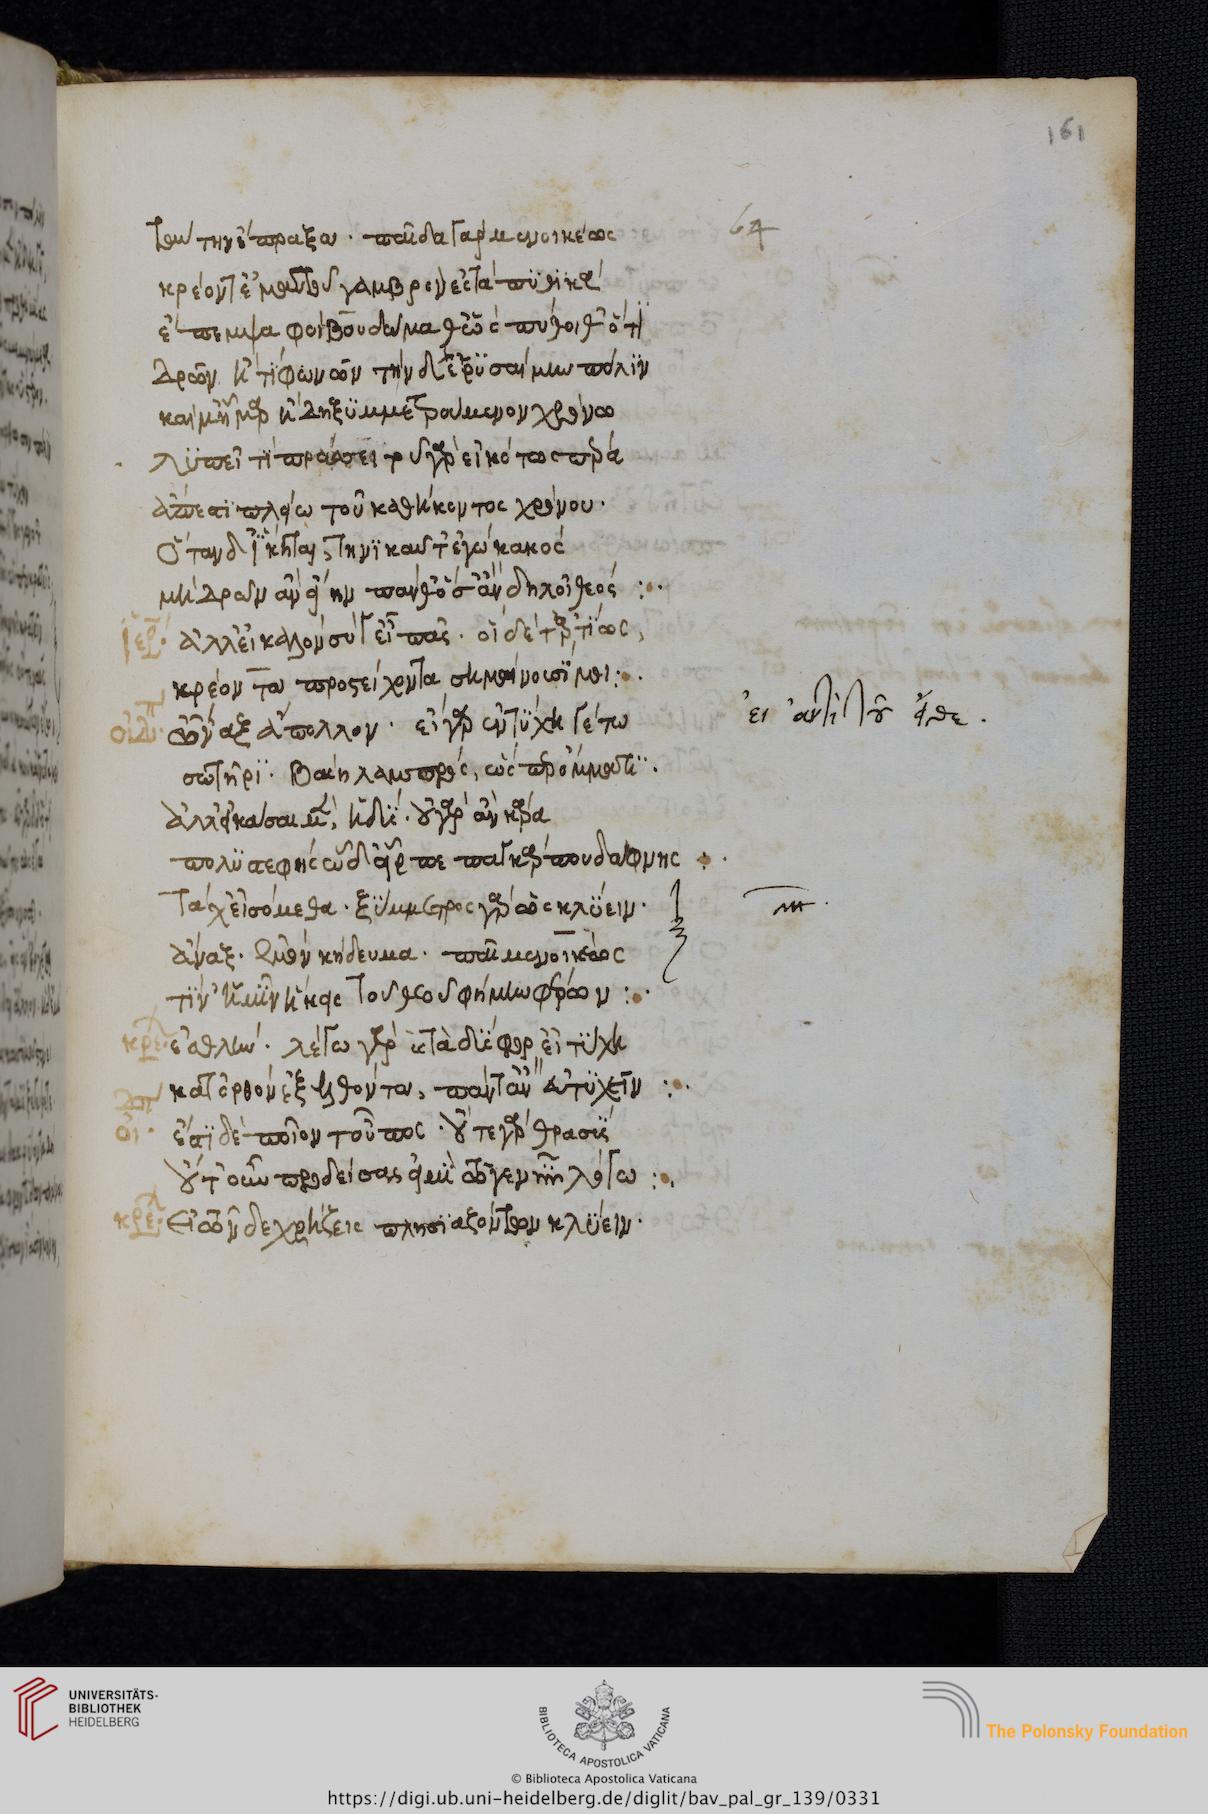 161
64
ταύτην ἔπραξα· παῖδα γὰρ μενοικέως
κρέοντ' ἐμαυτοῦ γαμβρὸν ἐς τὰ πυθικὰ
ἔπεμψα φοίβου δώμαθ' ὡς πύθοιθ' ὅτι
δρῶν ἢ τί φωνῶν τήνδε ῥυσαίμην πόλιν
καί μ' ἦμαρ ἤδη ξυμμετρούμενον χρόνω
λυπεῖ τί πράσσει· τοῦ γὰρ εἰκότος πέρα
ἄπεστι πλείω τοῦ καθήκοντος χρόνου·
ὅταν δ' ἵκηται, τηνικαῦτ' ἐγὼ κακὸς
μὴ δρῶν ἂν εἴην πάνθ' ὅσ' ἂν δηλοῖ θεός :·
ἱερ· ἀλλ' εἰς καλὸν σύ τ' εἶπας· οἵδε τ' ἀρτίως,
κρέοντα προσστείχοντα σημαίνουσί μοι :·
οἰδ· ὦναξ ἄπολλον· εἰ γὰρ ἐν τύχη γέ τω
εἰ ἀντὶ τοῦ εἴθε.
σωτῆρι· βαίη λαμπρὸς, ὡς πρ ὄμματι.
ἀλλ' εἰκάσαι μὲν, ἡδύ· οὐ γὰρ ἂν κάρα
πολυστεφὴς ὧδ' εἷρπε παγκάρπου δάφνης :·
τάχ' εἰσόμεθα· ξύμμετρος γὰρ ὡς κλύειν·
ἄναξ· ἐμὸν κήδευμα· παῖ μενοικέως
τίν' ἡμὶν ἥκεις τοῦ θεοῦ φήμην φέρων :·
κρε· ἐσθλήν· λέγω γὰρ καὶ τὰ δύσφορ' εἰ τύχη
κατ' ὀρθὸν ἐξελθόντα, πάντ' ἂν εὐτυχεῖν :·
οἰ· ἔστι δὲ ποῖον τοὖπος· οὔτε γὰρ θρασὺς
οὔτ' οὖν προδείσας εἰμὶ τῶ γε νῦν λόγω :·
κρε· εἰ τῶνδε χρήζεις πλησιαζόντων κλύειν·
UNIVERSITÄTS-
BIBLIOTHEK
HEIDELBERG
BIBLIOTECA APOSTOLICA VATICANA
The Polonsky Foundation
© Biblioteca Apostolica Vaticana
https://digi.ub.uni-heidelberg.de/diglit/bav_pal_gr_139/0331